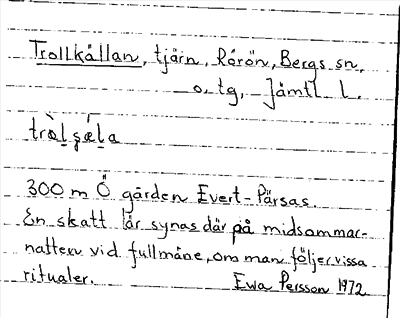 Trollkällan, tjärn, Rörön, Bergs sn,
o. tg, Jämtl. l.
tròlʂǽla
300 m Ö gården Evert-Pärsas.
En skatt lär synas där på midsommar-
natten vid fullmåne, om man följer vissa
ritualer. Ewa Persson 1972